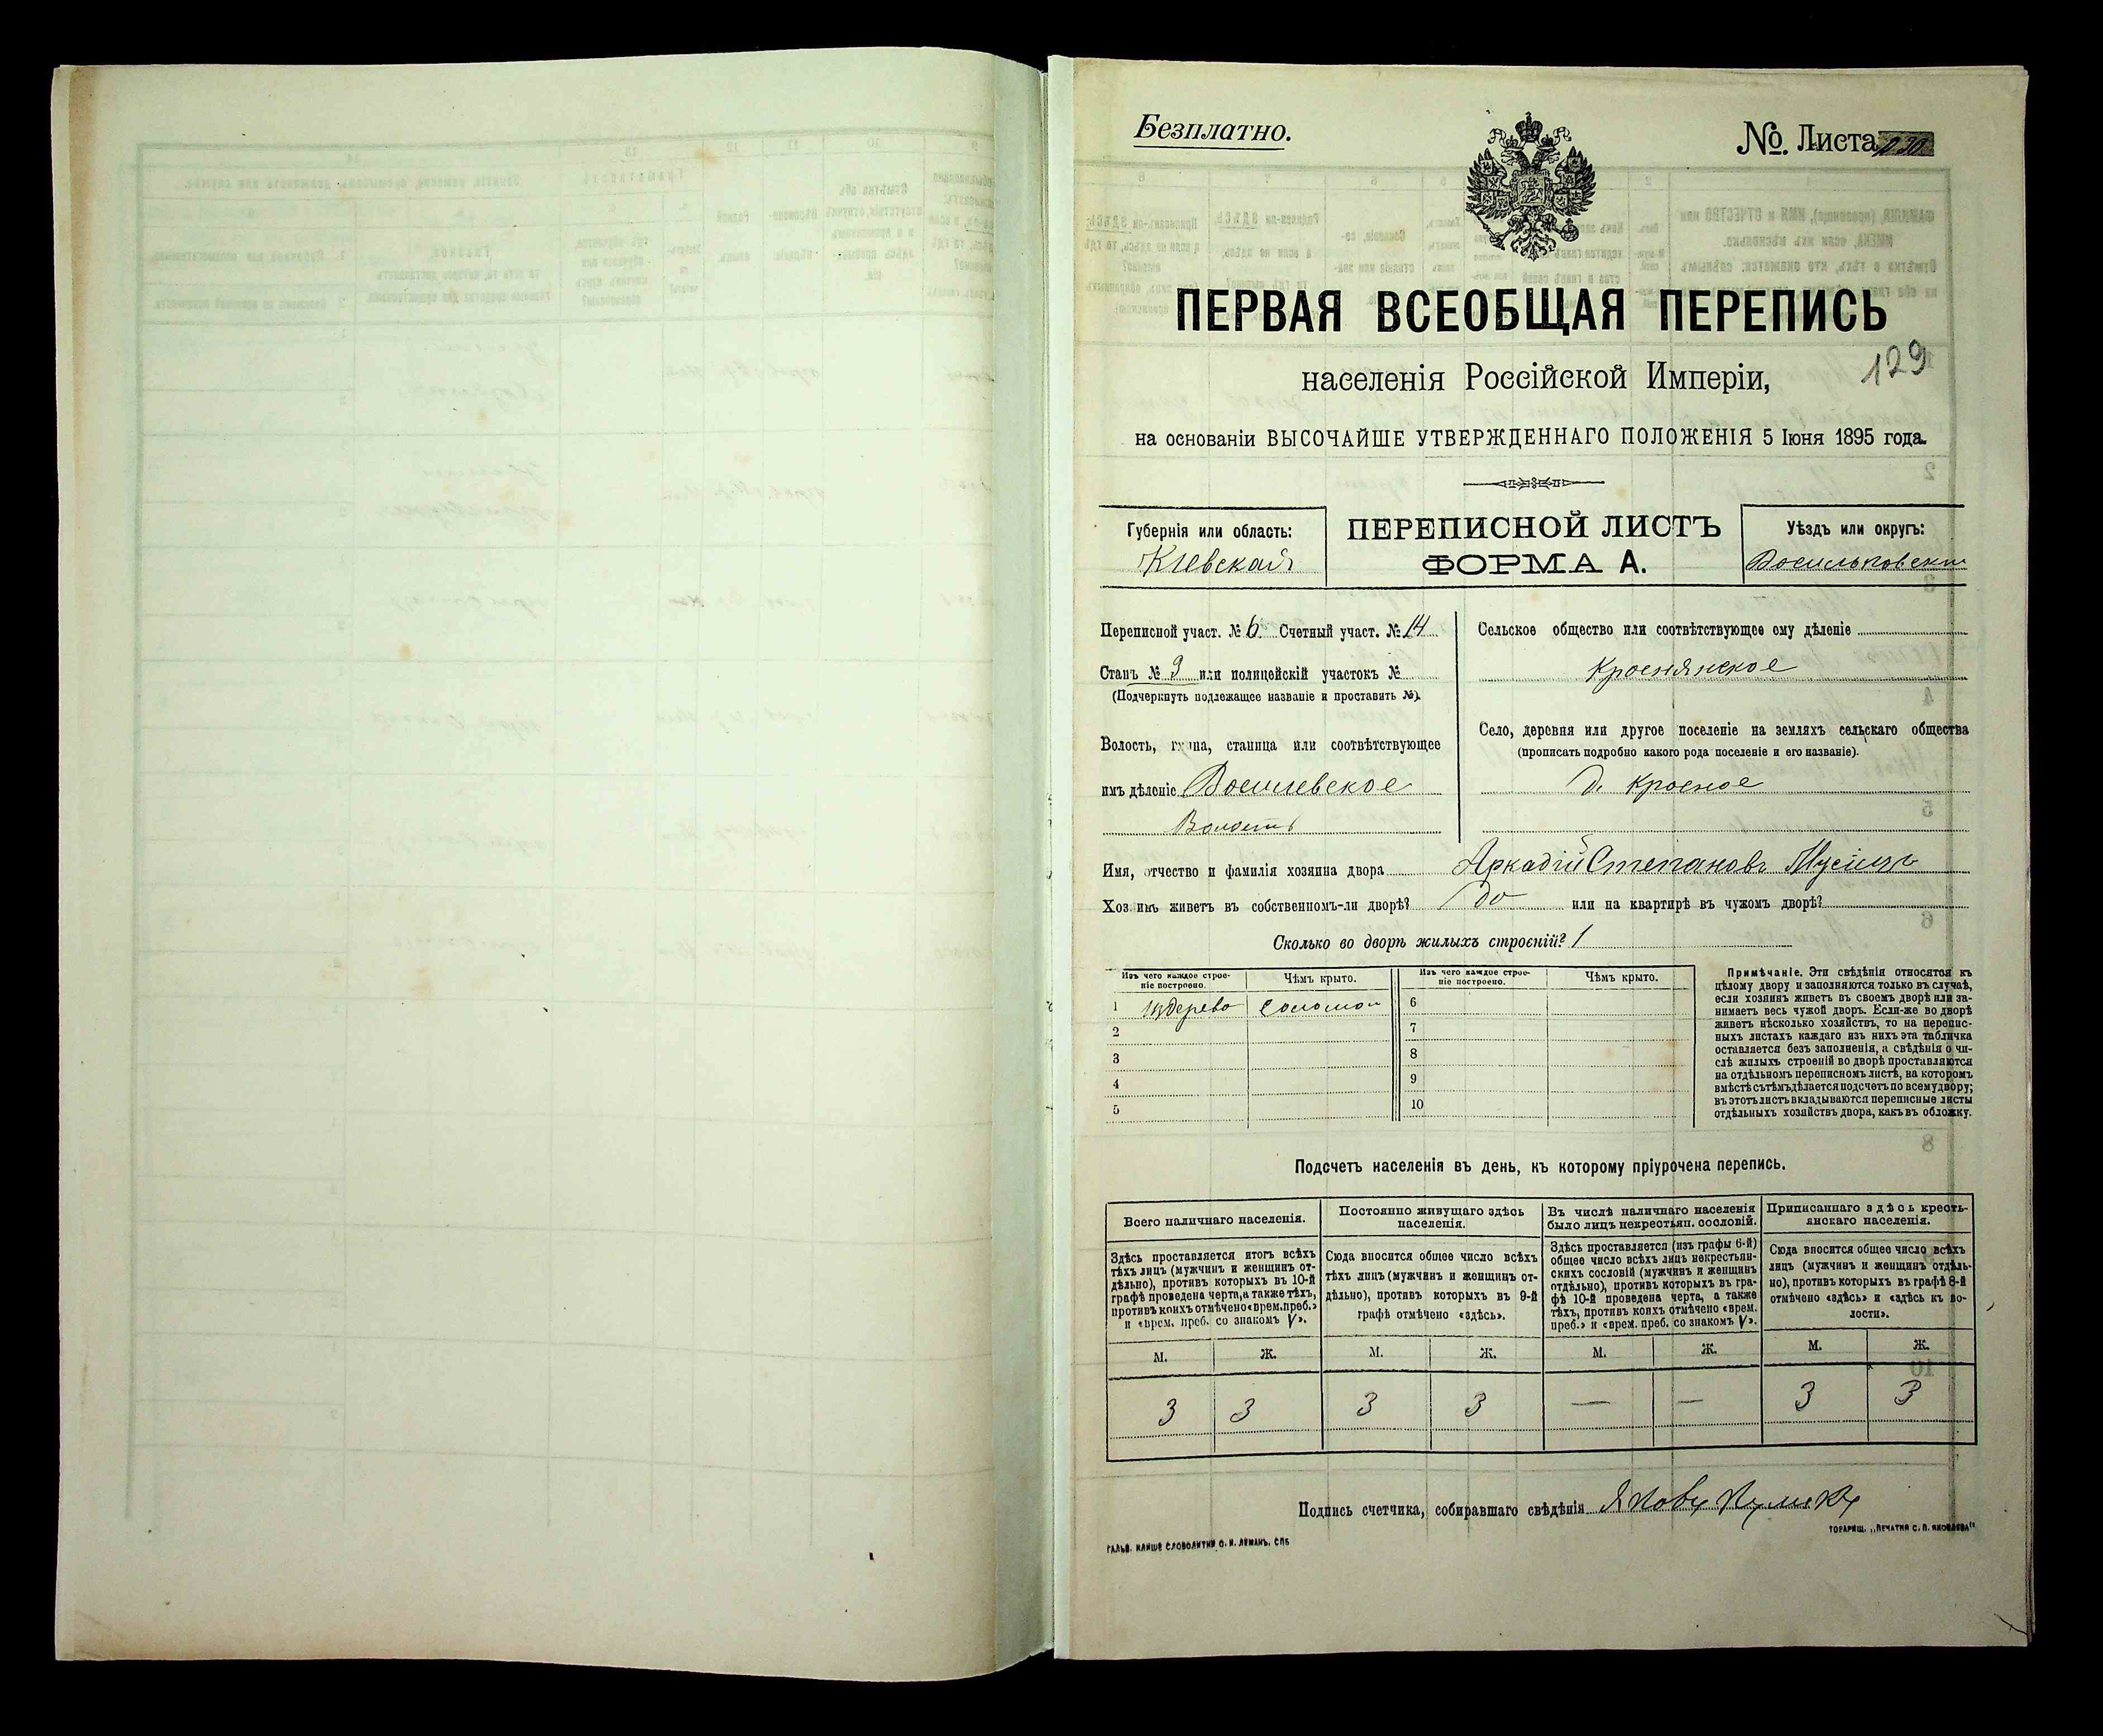 Безплатно.
№. Листа 30.
ПЕРВАЯ ВСЕОБЩАЯ ПЕРЕПИСЬ
населенія Россійской Имперіи,
129
на основаніи ВЫСОЧАЙШЕ УТВЕРЖДЕННАГО ПОЛОЖЕНІЯ 5 Іюня 1895 года.
Губернія или область:
Кіевская
ПЕРЕПИСНОЙ ЛИСТЪ
ФОРМА А.
Уѣздъ или округъ:
Васильковскій
Переписной участ. № 6. Счетный участ. № 14
Станъ № 3 или полицейскій участокъ №
(Подчеркнуть подлежащее названіе и проставить №).
Волость, гмина, станица или соотвѣтствующее
имъ дѣленіе
Волость
Сельское общество или соотвѣтствующее ому дѣленіе
Краснянское
Село, деревня или другое поселеніе на земляхъ сельскаго общества
(прописать подробно какого рода поселеніе и его названіе).
д. Красное
Имя, отчество и фамилія хозяина двора Аркадій Степановъ
Хозяинъ живетъ въ собственномъ-ли дворѣ? да или на квартирѣ въ чужомъ дворѣ?
Сколько во дворѣ жилыхъ строеній? 1
Изъ чего каждое строе-
ніе построено.
Чѣмъ крыто.
Изъ чего каждое строе-
ніе построено.
Чѣмъ крыто.
1 изъ дерева соломой
2
3
4
5
6
7
8
9
10
Примѣчаніе. Эти свѣдѣнія относятся къ
цѣлому двору и заполняются только въ случаѣ,
если хозяинъ живетъ въ своемъ дворѣ или за-
нимаетъ весь чужой дворъ. Если-же во дворѣ
живетъ нѣсколько хозяйствъ, то на перепис-
ныхъ листахъ каждаго изъ нихъ эта табличка
оставляется безъ заполненія, а свѣдѣнія о чи-
слѣ жилыхъ строеній во дворѣ проставляются
на отдѣльномъ переписномъ листѣ, на которомъ
вмѣстѣ съ тѣмъ дѣлается подсчетъ по всему двору;
въ этотъ листъ вкладываются переписные листы
отдѣльныхъ хозяйствъ двора, какъ въ обложку.
Подсчетъ населенія въ день, къ которому пріурочена перепись.
Всего наличнаго населенія.
Здѣсь проставляется итогъ всѣхъ
тѣхъ лицъ (мужчинъ и женщинъ от-
дѣльно), противъ которыхъ въ 10-й
графѣ проведена черта, а также тѣхъ,
противъ коихъ отмѣчено «врем. преб.»
и «врем. преб. со знакомъ V».
Постоянно живущаго здѣсь
населенія.
Сюда вносится общее число всѣхъ
тѣхъ лицъ (мужчинъ и женщинъ от-
дѣльно), противъ которыхъ въ 9-й
графѣ отмѣчено «здѣсь».
Въ числѣ наличнаго населенія
было лицъ некрестьян. сословій.
Здѣсь проставляется (изъ графы 6-й)
общее число всѣхъ лицъ некрестьян-
скихъ сословій (мужчинъ и женщинъ
отдѣльно), противъ которыхъ въ гра-
фѣ 10-й проведена черта, а также
тѣхъ, противъ коихъ отмѣчено «врем.
преб.» и «врем. преб. со знакомъ V».
Приписаннаго здѣсь кресть-
янскаго населенія.
Сюда вносится общее число всѣхъ
лицъ (мужчинъ и женщинъ отдѣль-
но), противъ которыхъ въ графѣ 8-й
отмѣчено «здѣсь» и «здѣсь къ во-
лости».
М. Ж. М. Ж. М. Ж. М. Ж.
3 3 3 3 — — 3 3
Подпись счетчика, собиравшаго свѣдѣнія Яковъ
ГАЛЬВ. КЛИШЕ СЛОВОЛИТНИ О. И. ЛЕМАНЪ, СПБ
ТОВАРИЩ. „ПЕЧАТНЯ С. П. ЯКОВЛЕВА"